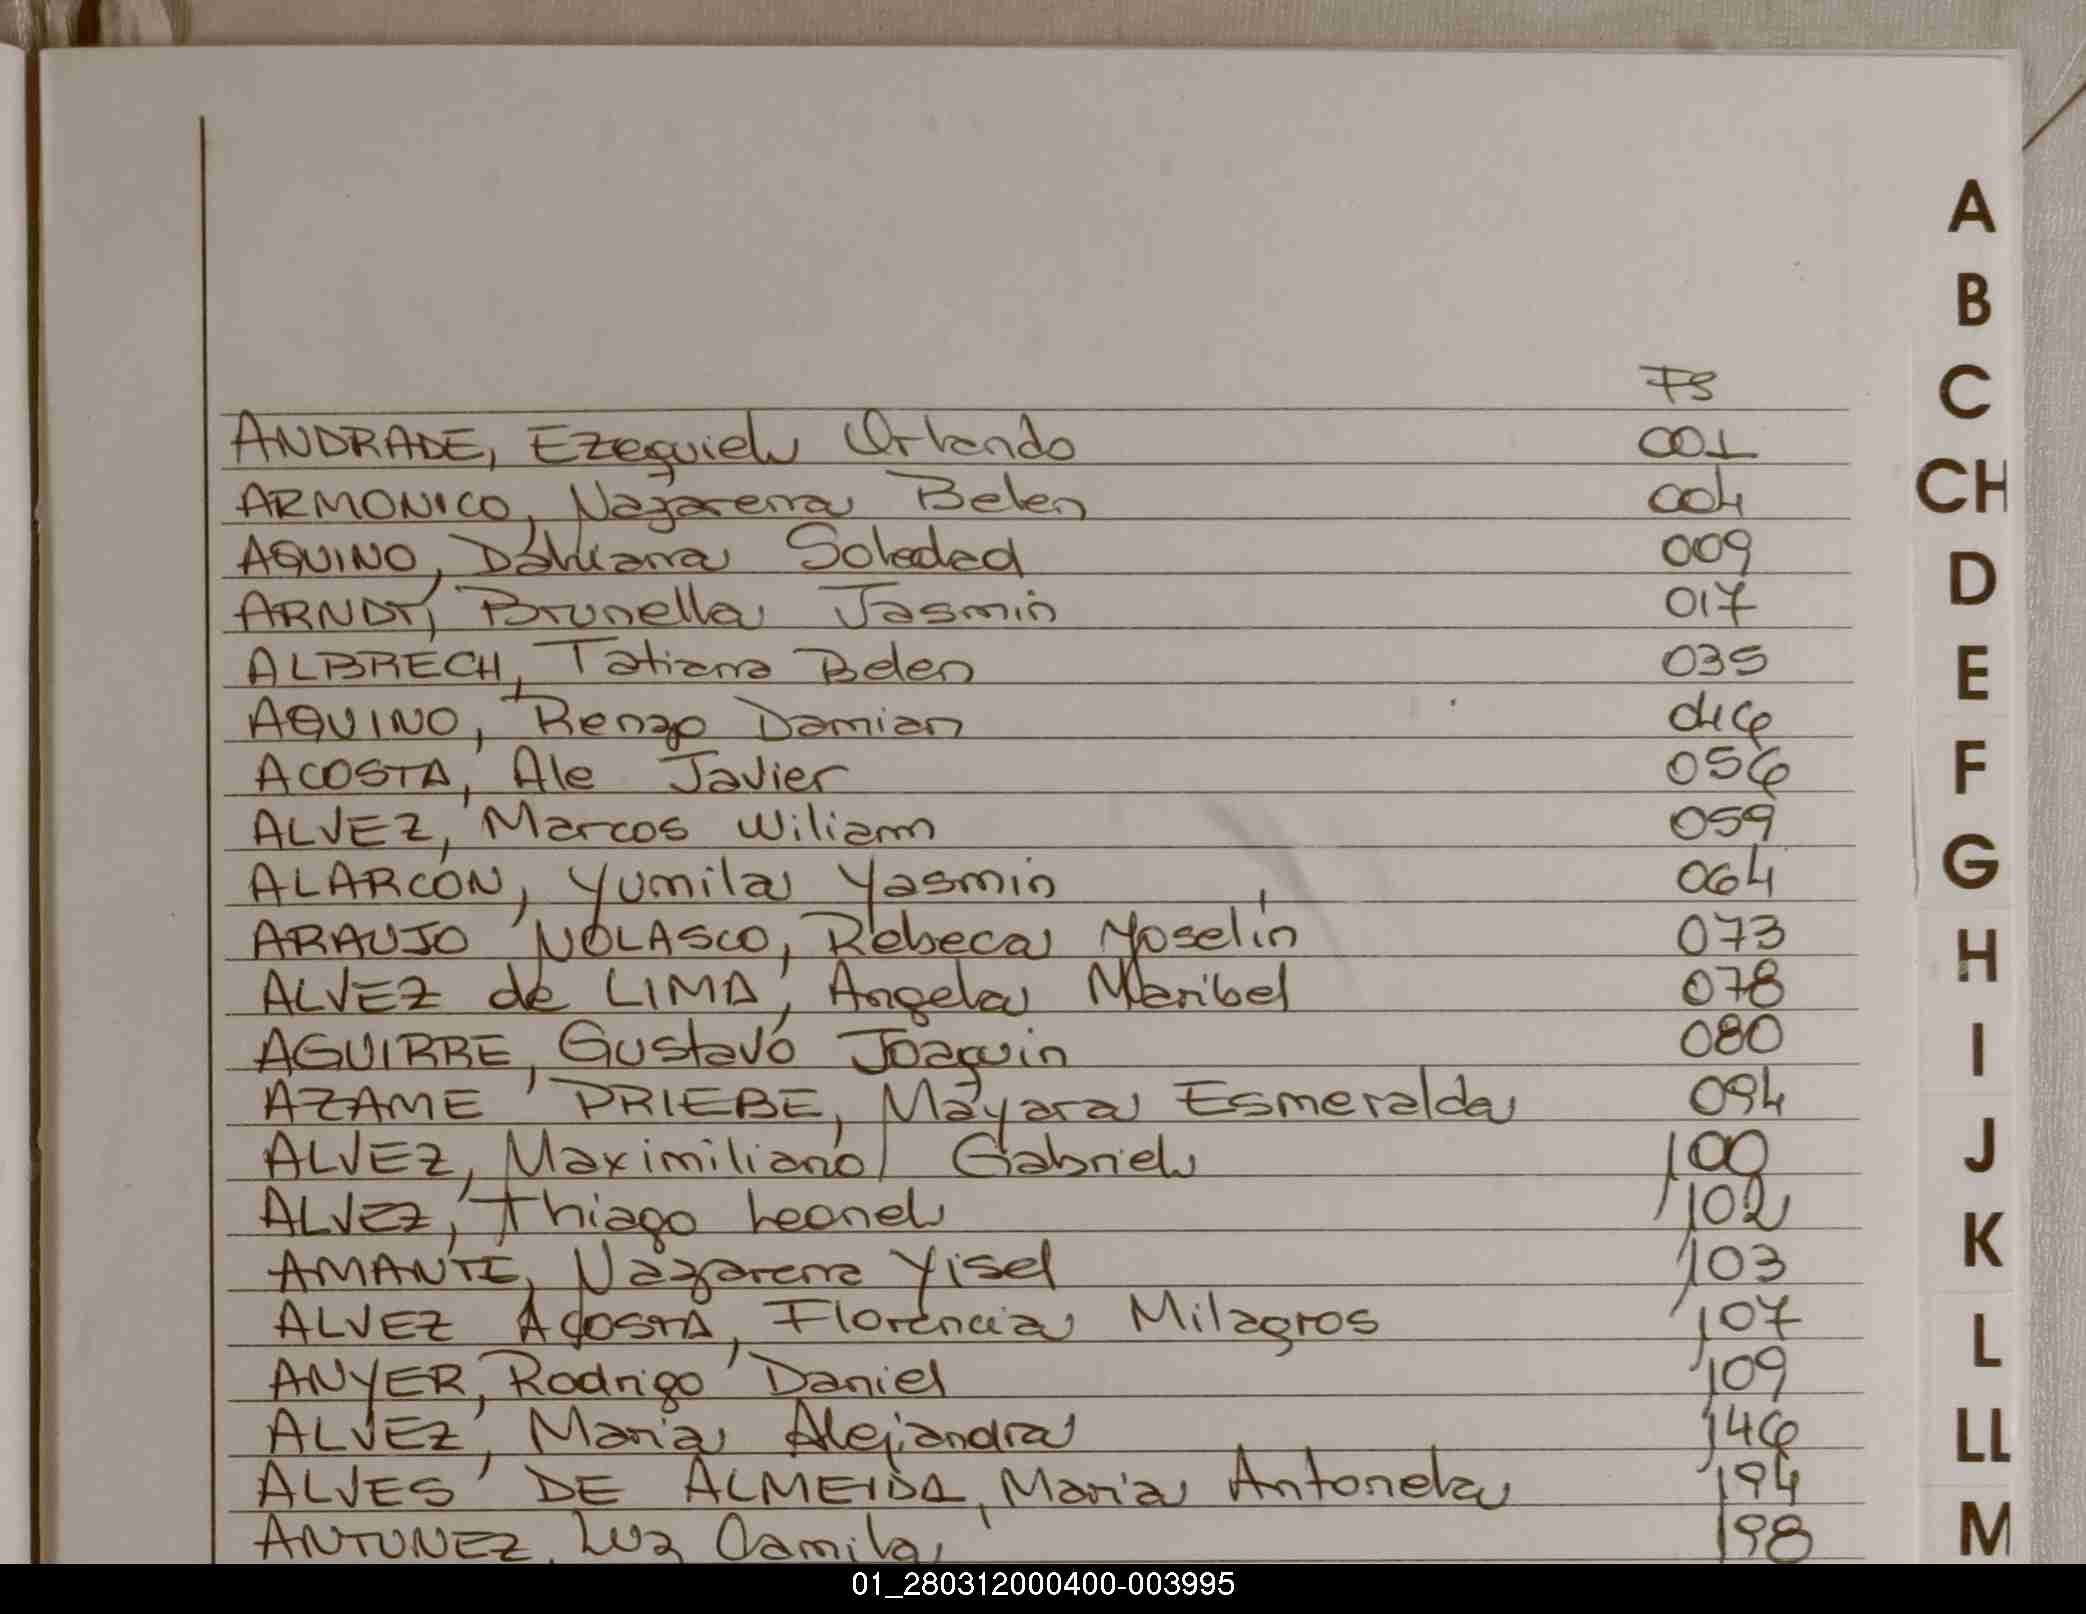 FS
ANDRADE, Ezequiel Orlando 001
ARMONICO, Nazarena Belen 004
AQUINO, Dahiana Soledad 009
ARNDT, Brunella Jasmin 017
ALBRECH, Tatiana Belen 035
AQUINO, Renzo Damian 046
ACOSTA, Ale Javier 056
ALVEZ, Marcos Wiliam 059
ALARCON, Yumila Yasmin 064
ARAUJO NOLASCO, Rebeca Yoselin 073
ALVEZ de LIMA, Angela Maribel 078
AGUIRRE, Gustavo Joaquin 080
AZAME PRIEBE, Mayara Esmeralda 094
ALVEZ, Maximiliano Gabriel 100
ALVEZ, Thiago Leonel 102
AMANTE, Nazarena Yisel 103
ALVEZ ACOSTA, Florencia Milagros 107
ANYER, Rodrigo Daniel 109
ALVEZ, Maria Alejandra 146
ALVES DE ALMEIDA, Maria Antonela 194
ANTUNEZ, Luz Camila 198
A
B
C
CH
D
E
F
G
H
I
J
K
L
LL
M
01_280312000400-003995